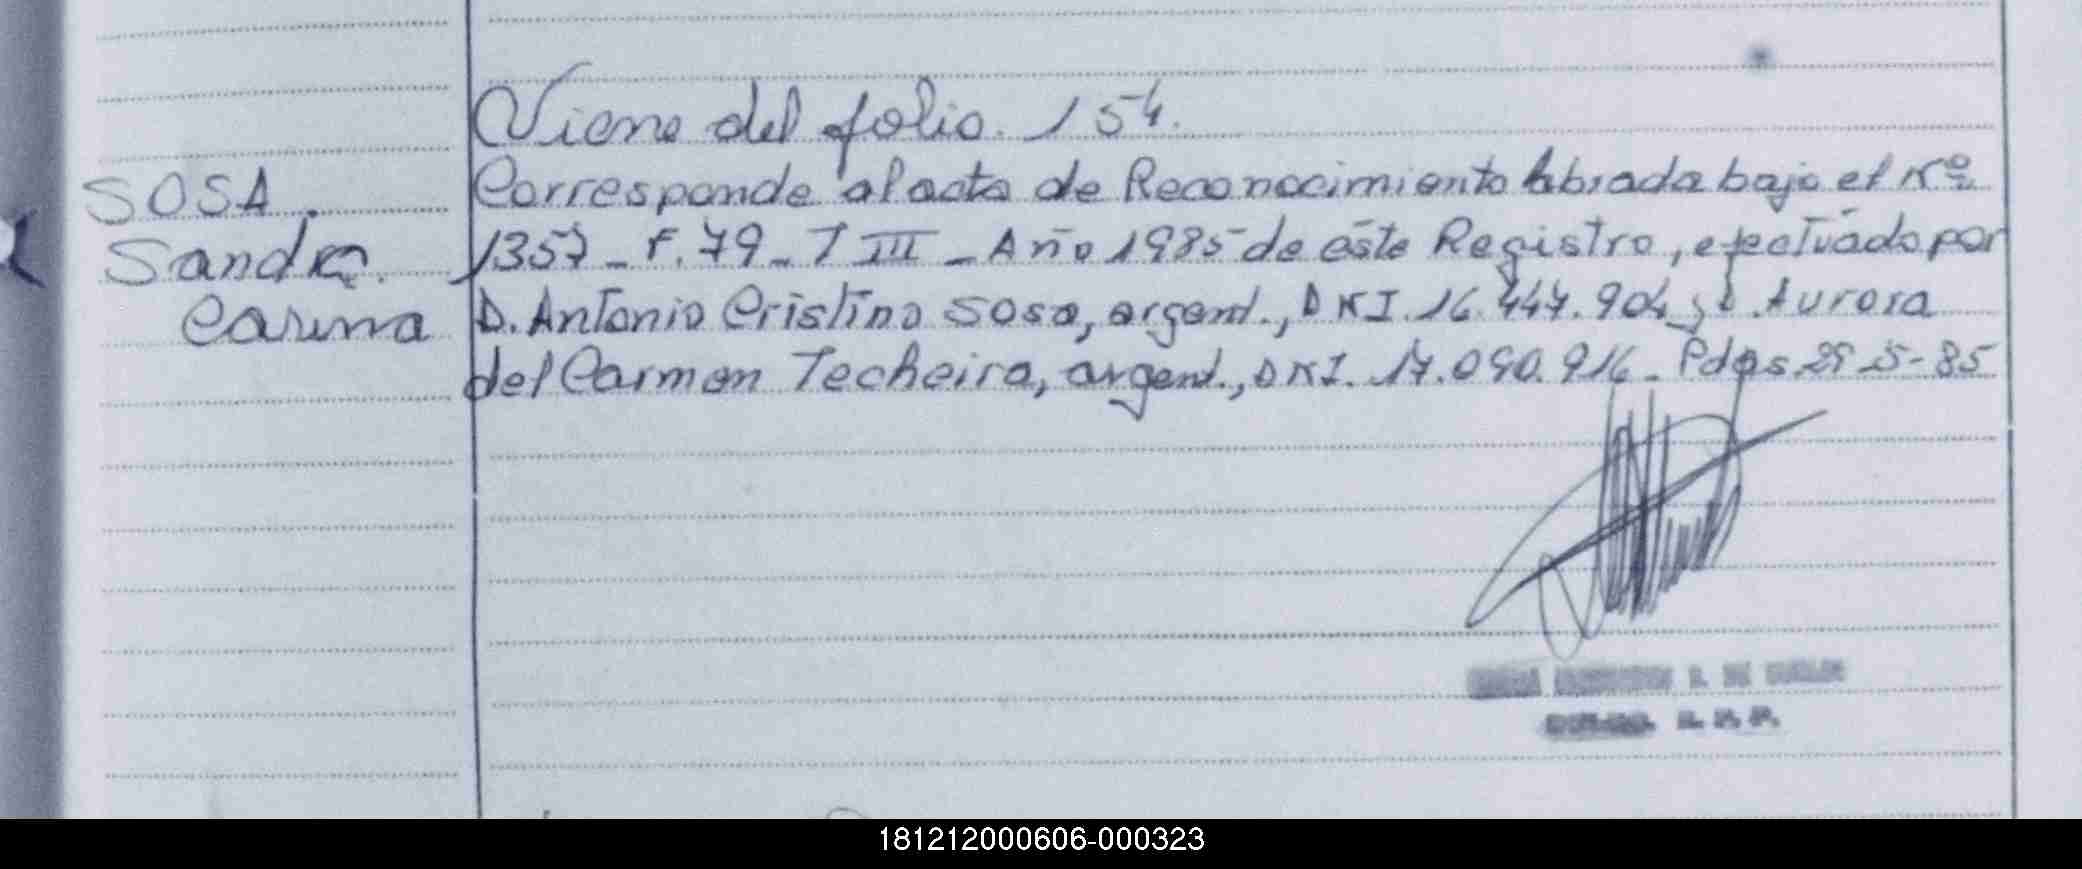 Viene del folio. 154.
SOSA. Corresponde al acta de Reconocimiento labrada bajo el Nº
Sandra. 1357 - F. 79 - T III - Año 1985 de este Registro, efectuado por
Carina D. Antonio Cristino Sosa, argent., DNI. 16.447.904 y D. Aurora
del Carmen Techeira, argent., DNI. 17.090.916 - Pdas 29-5-85
181212000606-000323